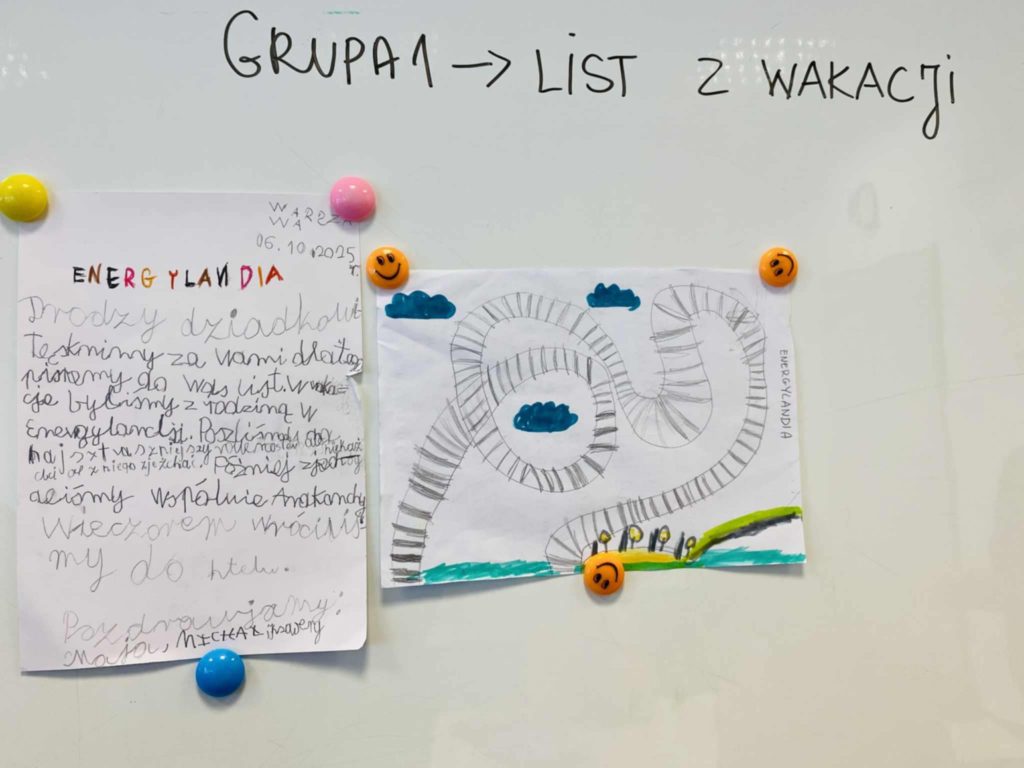 GRUPA 1 → LIST Z WAKACJI
WARSZA
WA
06.10.2025
r.
ENERGYLANDIA
Drodzy dziadkowi
Tęsknimy za wami dlatego
piszemy do was list. W waka=
cje byliśmy z rodziną w
Energylandji. Poszliśmy do
najsztraszniejszy
z niego zjeżchał. Później
wspólnie Anakondy
Wieczorem wróciliś
my do htelu.
Pozdrawjamy:
Maja, MICHAŁ i Ksawery
ENERGYLANDIA